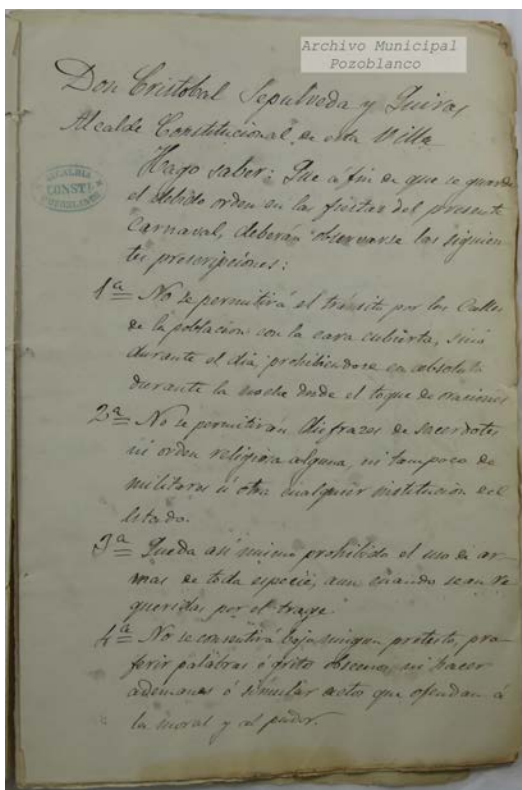 Archivo Municipal
Pozoblanco
Don Cristobal Sepulveda y Quiros,
Alcalde Constitucional de esta Villa
ALCALDIA
CONSTL
POZOBLANCO
Hago saber: Que á fin de que se guarde
el debido orden en las fiestas del presente
Carnaval, deberán observarse las siguien
tes prescripciones:
1ª No se permitirá el tránsito por las Calles
de la poblacion con la cara cubierta, sinó
durante el dia, prohibiendose en absoluto
durante la noche desde el toque de oraciones
2ª No se permitirán disfrazes de sacerdotes
ni orden religiosa alguna, ni tampoco de
militares ú otra cualquier institución del
Estado.
3ª Queda asi mismo prohibido el uso de ar
mas de toda especie, aun cuando sean re
queridas por el trage.
4ª No se consentirá bajo ningun pretesto, pro
ferir palabras ó grito obsceno, ni hacer
ademanes ó simular actos que ofendan á
la moral y al pudor.